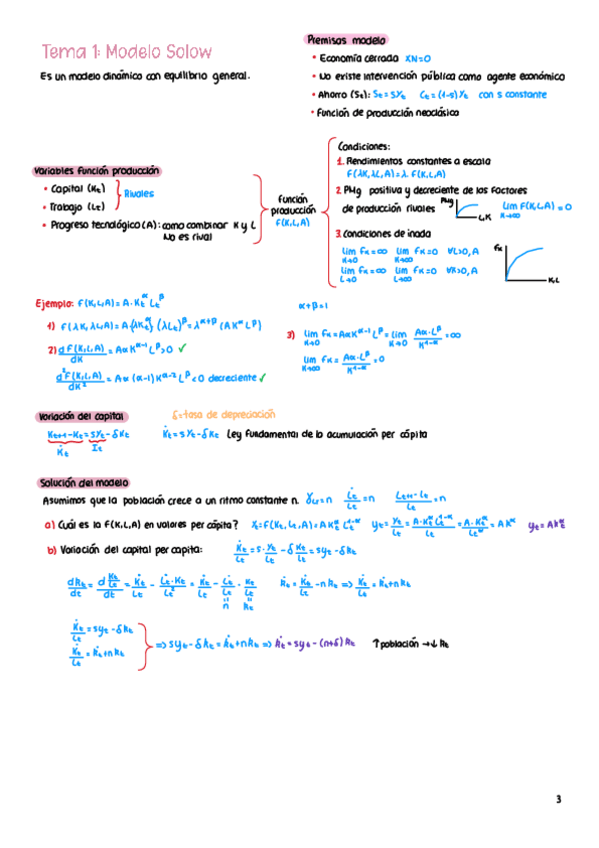 Tema 1: Modelo Solow
Es un modelo dinámico con equilibrio general.
Premisas modelo
• Economía cerrada XN=0
• No existe intervención pública como agente económico
• Ahorro (St): St = sYt   Ct = (1-s)Yt   con s constante
• Función de producción neoclásica
Variables función producción
• Capital (Kt)
• Trabajo (Lt)
Rivales
• Progreso tecnológico (A): como combinar K y L
No es rival
Función
producción
F(K,L,A)
Condiciones:
1. Rendimientos constantes a escala
F(λK,λL,A) = λ. F(K,L,A)
2. PMg positiva y decreciente de los factores
de producción rivales
PMg
L,K
lim F(K,L,A) = 0
K→∞
3. Condiciones de inada
lim FK = ∞   lim FK = 0   ∀L>0, A
K→0   K→∞
lim FK = ∞   lim FK = 0   ∀K>0, A
L→0   L→∞
FK
K,L
Ejemplo: F(K,L,A) = A·Kt^α Lt^β
α+β=1
1) F(λK,λL,A) = A(λKt^α)(λLt)^β = λ^α+β (AK^α L^β)
2) dF(K,L,A)/dK = Aα K^α-1 L^β > 0 ✓
d²F(K,L,A)/dK² = Aα (α-1) K^α-2 L^β < 0 decreciente ✓
3) lim FK = AαK^α-1 L^β = lim Aα·L^β/K^1-α = ∞
K→0   K→0
lim FK = Aα·L^β/K^1-α = 0
K→∞
Variación del capital
δ = tasa de depreciación
Kt+1 - Kt = sYt - δKt
K̇t   It
K̇t = sYt - δKt   Ley fundamental de la acumulación per cápita
Solución del modelo
Asumimos que la población crece a un ritmo constante n.   γLt = n   L̇t/Lt = n   Lt+1 - Lt/Lt = n
a) Cuál es la F(K,L,A) en valores per cápita?   Yt = F(Kt,Lt,A) = AKt^α Lt^1-α   yt = Yt/Lt = A·Kt^α Lt^1-α/Lt = A·Kt^α/Lt^α = Ak^α   yt = Akt^α
b) Variación del capital per capita:   K̇t/Lt = s·Yt/Lt - δ Kt/Lt = syt - δkt
dkt/dt = d Kt/Lt/dt = K̇t/Lt - L̇t·Kt/Lt² = K̇t/Lt - L̇t/Lt · Kt/Lt   k̇t = K̇t/Lt - nkt => K̇t/Lt = k̇t + nkt
n   kt
K̇t/Lt = syt - δkt
K̇t/Lt = k̇t + nkt
=> syt - δkt = k̇t + nkt => k̇t = syt - (n+δ)kt   ↑población → ↓kt
3